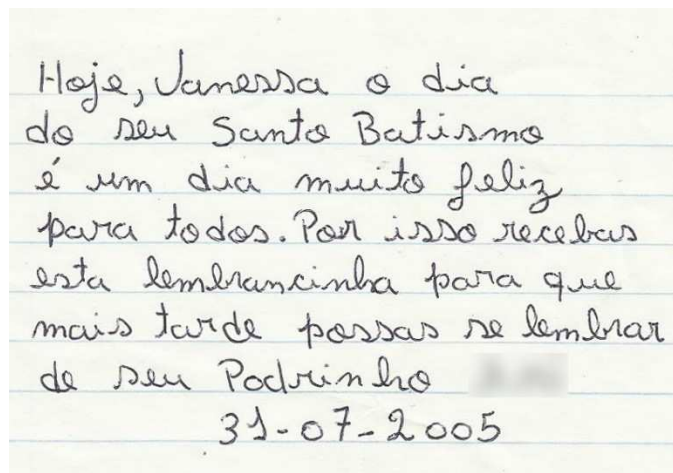 Hoje, Vanessa o dia
do seu Santo Batismo
é um dia muito feliz
para todos. Por isso recebas
esta lembrancinha para que
mais tarde possas se lembrar
de seu Padrinho
31-07-2005